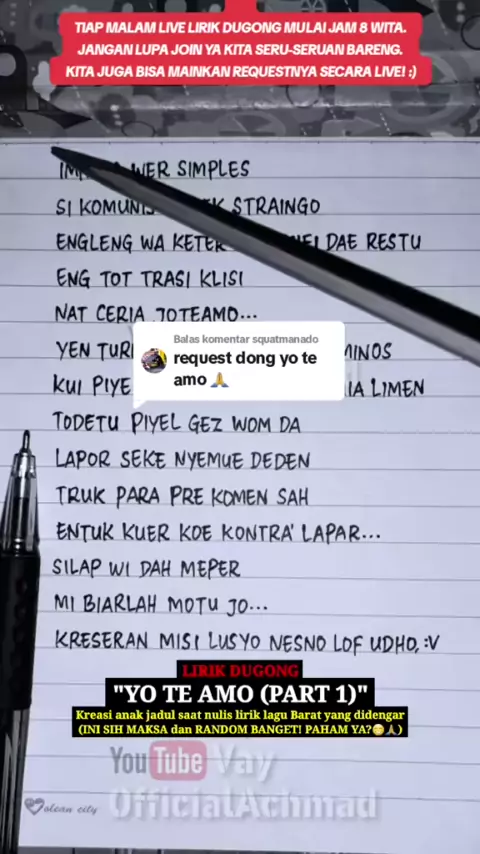 TIAP MALAM LIVE LIRIK DUGONG MULAI JAM 8 WITA.
JANGAN LUPA JOIN YA KITA SERU-SERUAN BARENG.
KITA JUGA BISA MAINKAN REQUESTNYA SECARA LIVE! :)
WER SIMPLES
SI STRAINGO
ENGLENG WA DAE RESTU
ENG TOT TRASI KLISI
NAT CERIA JOTEAMO...
YEN
Balas komentar squatmanado
request dong yo te
amo 🙏
KUI LIMEN
TODETU PIYEL GEZ WOM DA
LAPOR SEKE NYEMUE DEDEN
TRUK PARA PRE KOMEN SAH
ENTUK KUER KOE KONTRA' LAPAR...
SILAP WI DAH MEPER
MI BIARLAH MOTU JO...
KRESERAN MISI LUSYO NESNO LOF UDHO, :V
LIRIK DUGONG
"YO TE AMO (PART 1)"
Kreasi anak jadul saat nulis lirik lagu Barat yang didengar
(INI SIH MAKSA dan RANDOM BANGET! PAHAM YA?😁🙏)
YouTube Vay
OfficialAchmad
olean city